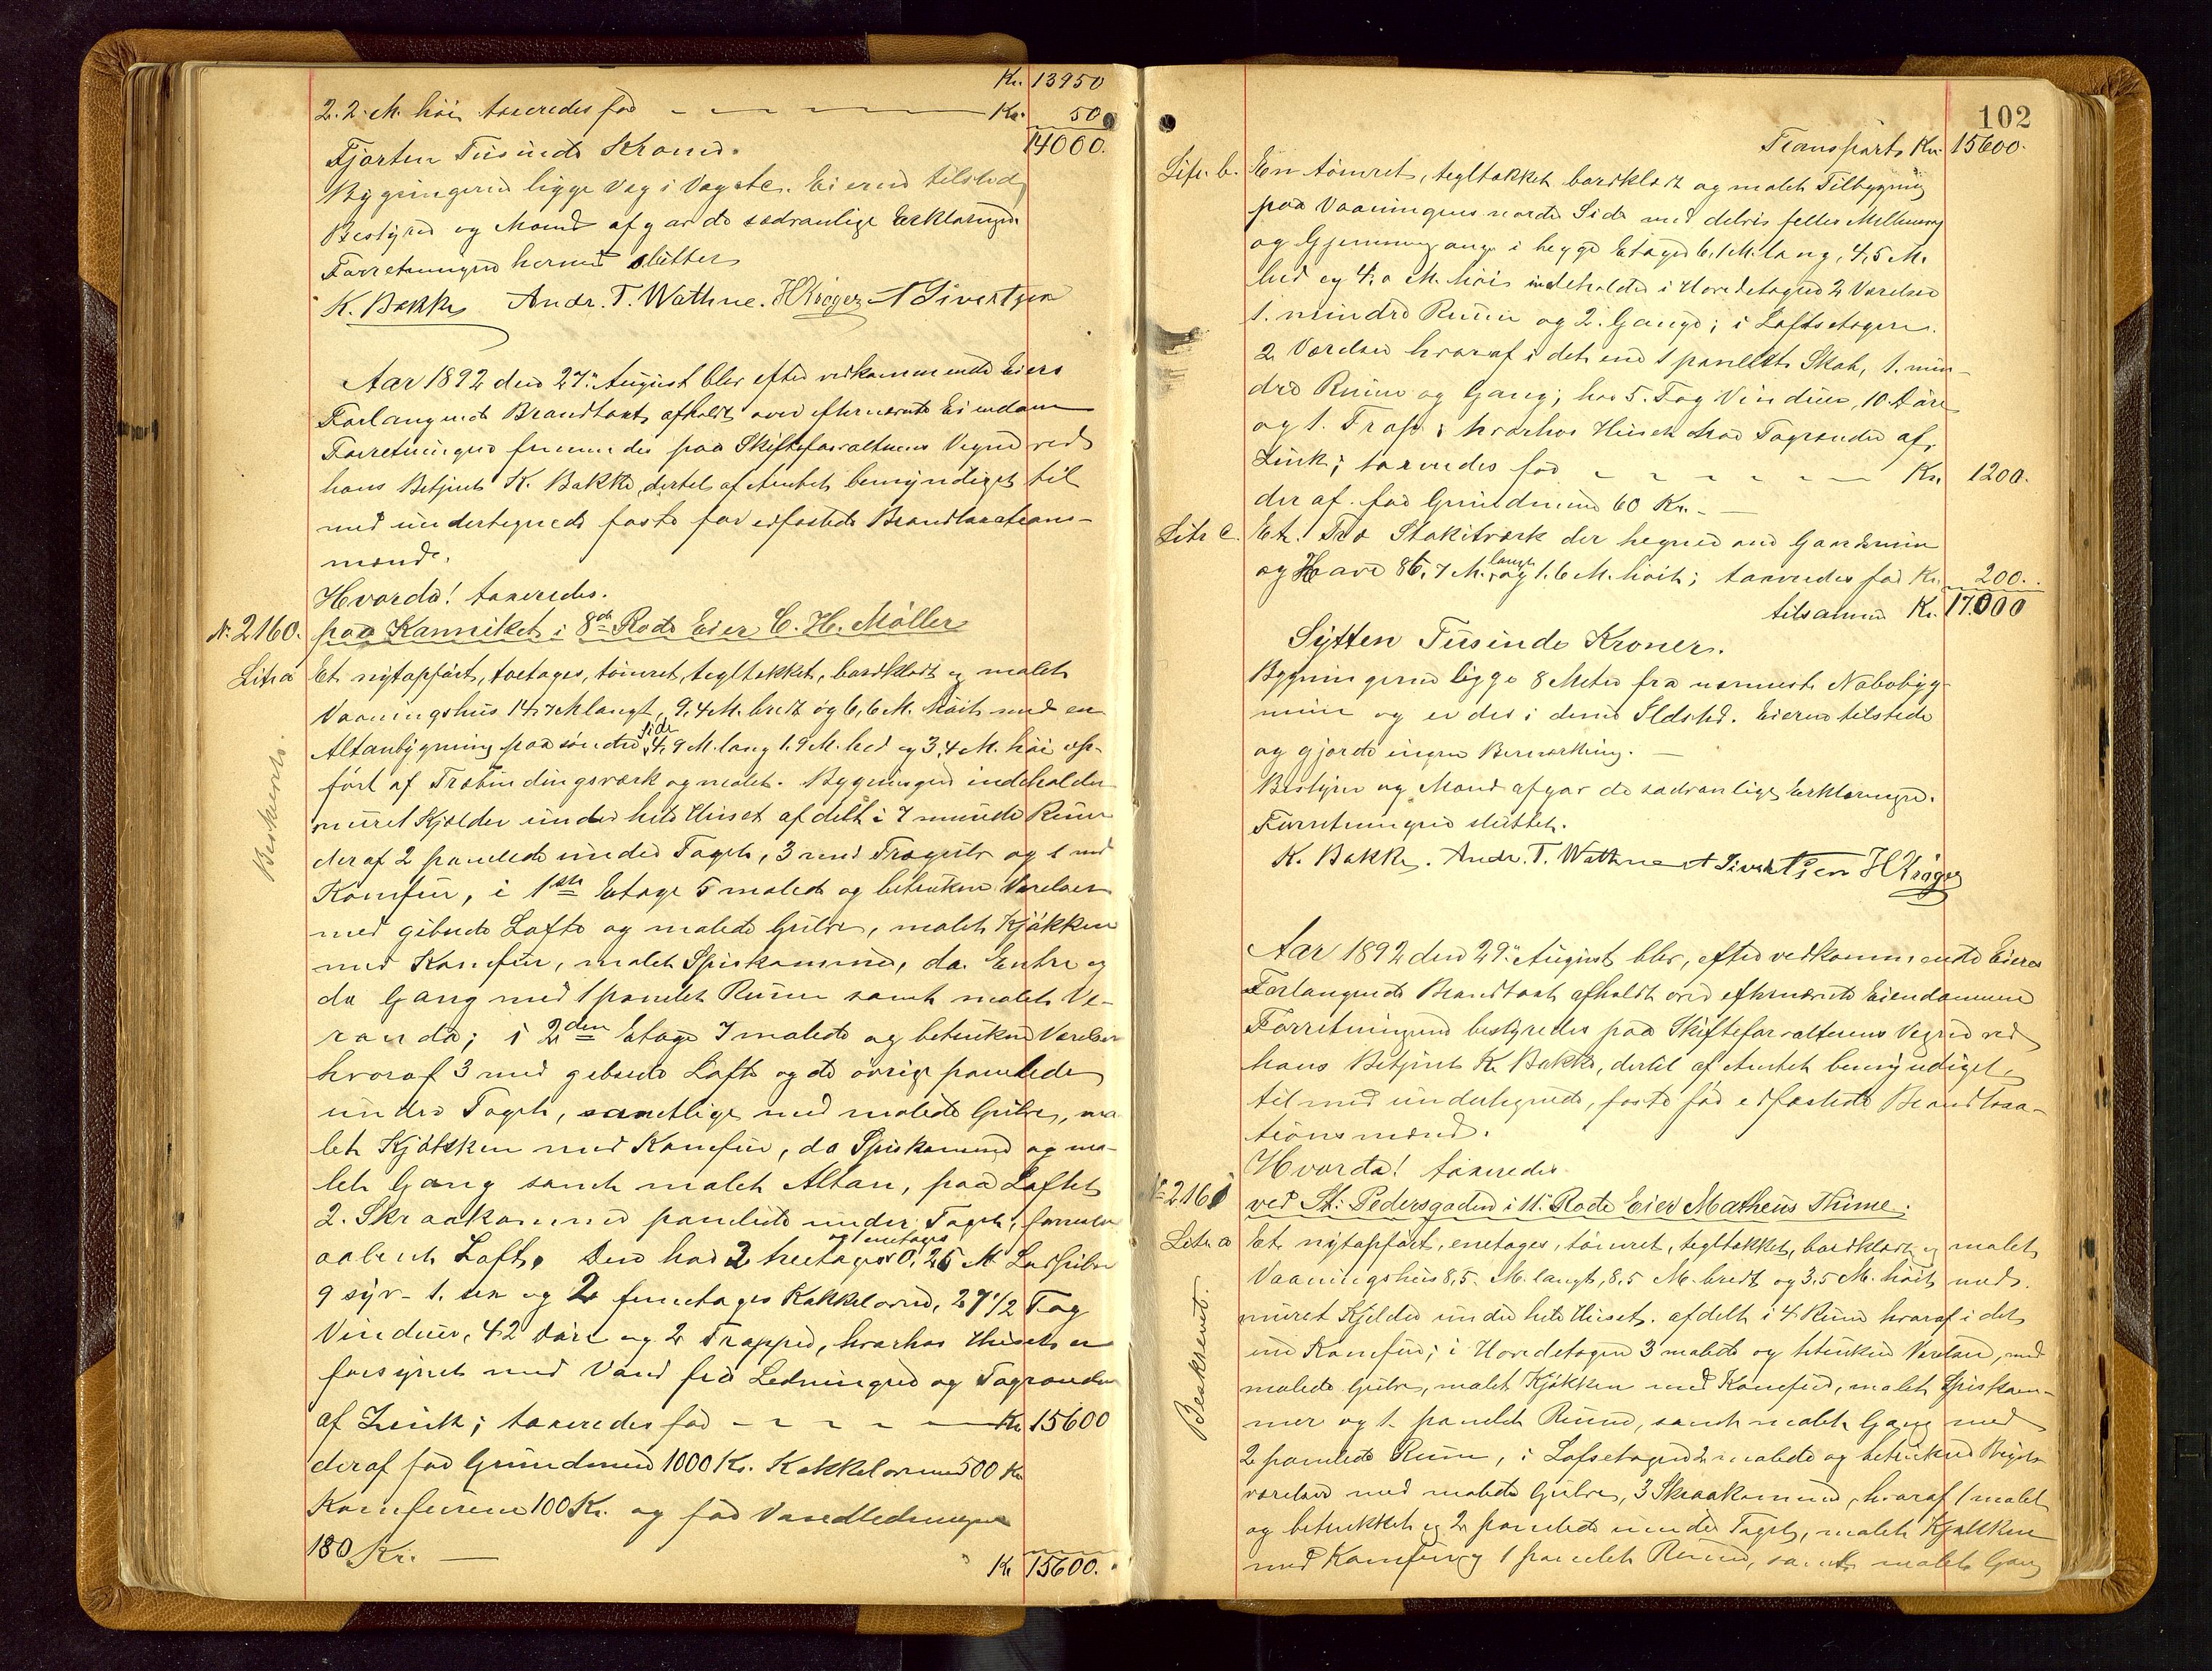 Kr. 13950
2.2 M. høi taxeredes for Kr. 50
14000.
Fjorten Tusinde Kroner.
Bygningerne ligge Væg i Væg etc. Eieren tilstede
Bestyrer og Mænd afgav de sædvanlige Erklæringer
Forretningen hermed sluttet
K. Bakke Andr. T. Wathne. H Krøger A Sivertsen
Aar 1892 den 27. August blev efter vedkommende Eiers
Forlangende Brandtaxt afholdt over efternævnte Eiendom
Forretningen fremmedes paa Skifteforvalterens Vegne ved
hans Betjent K. Bakke, dertil af Amtet bemyndiget til
med undertegnede faste for edfæstede Brandtaxations-
mænd.
Hvorda! taxeredes.
N. 2160. paa Kanniket i 8de Rode Eier C. H. Møller
Litr a Et nyt opført, toetages, tømret, tegltækket, bordklædt og malet
Vaaningshus 14,7 M langt, 9,4 M. bredt og 6,6 M. høit med en
Altanbygning paa søndre Side 4,9 M. lang 1.9 M. bred og 3,4 M. høi op-
ført af Træbindingsværk og malet. Bygningen indeholder
muret Kjelder under hele Huset afdelt i 7 mindre Rum
deraf 2 panelede under Taget, 3 med Trægulv og 1 med
Komfur, i 1ste Etage 5 malede og betrukne Værelser
med gibsede Lofte og malede Gulve, malet Kjøkken
med Komfur, malet Spiskammer, do. Entre og
do Gang med 1 panelet Rum samt malet Ve-
randa; i 2den Etage 7 malede og betrukne Værelser
hvoraf 3 med gibsede Loft og de øvrige panelede
under Taget, samtlige med malede Gulve, ma-
let Kjøkken med Komfur, do Spiskammer og ma-
let Gang samt malet Altan, paa Loftet
2. Skraakammere panelede under Taget, forresten
aabent Loft. Den har 2 treetages og 1 enetages 0,26 M
9 syv- 1. sex og 2 femetages Kakkelovne, 27 1/2 Fag
Vinduer, 42 Døre og 2 Trapper, hvorhos Huset er
forsynet med Vand fra Ledningen og Tagrender
af Zink; taxeredes for Kr 15600
deraf for Grundmur 1000 Kr. Kakkelovnene 500 Kr
Komfurene 100 Kr. og for Vandledningen
180 Kr.
Kr 15600.
Beskrevet.
102
Transport Kr. 15600.
Litr. b. En tømret, tegltækket bordklædt og malet Tilbygning
paa Vaaningens nordre Side med delvis fælles Mellemvæg
og Gjennemgange i begge Etager 6,1 M. lang, 4,5 M.
bred og 4,0 M. høi indeholder i Hovedetagen 2 Værelser
1. mindre Rum og 2. Gange; i Loftsetagen
2 Værelser hvoraf i det ene 1 panelet Skab, 1. min-
dre Rum og Gang; har 5. Fag Vinduer, 10 Døre
og 1. Trap; hvorhos Huset har Tagrender af
Zink; taxeredes for Kr. 1200.
deraf for Grundmur 60 Kr.
Litr c. Et Træ Stakitværk der hegner om Gaardsrum
og Have 86,7 M. langt og 1.6 M. høit; taxeredes for Kr. 200.
tilsammen Kr. 17000
Sytten Tusinde Kroner.
Bygningerne ligge 8 Meter fra nærmeste Nabobyg-
ning og er der i denne Ildsted. Eieren tilstede
og gjorde ingen Bemærkning.
Bestyrer og Mænd afgav de sædvanlige Erklæringer.
Forretningen sluttet.
K. Bakke. Andr. T. Wathne A Sivertsen H Krøger
Aar 1892 den 29. August blev, efter vedkommende Eiers
Forlangende Brandtaxt afholdt over efternævnte Eiendomme
Forretningen bestyredes paa Skifteforvalterens Vegne ved
hans Betjent K. Bakke, dertil af Amtet bemyndiget,
til med undertegnede, faste for edfæstede Brandtaxa-
tionsmænd.
Hvorda! taxeredes
No 2161 ved St: Pedersgaden i 11. Rode Eier Matheus Thime.
Litr. a Et nyt opført, enetages, tømret, tegltækket, bordklædt og malet
Vaaningshus 8,5. M. langt, 8.5 M. bredt og 3.5 M. høit med
muret Kjelder under hele Huset. afdelt i 4 Rum hvoraf i det
ene Komfur; i Hovedetagen 3 malede og betrukne Værelser, med
malede Gulve, malet Kjøkken med Komfur, malet Spiskam-
mer og 1. panelet Rum, samt malet Gang med
2 panelede Rum, i Loftsetagen 2 malede og betrukne Kvist-
værelser med malede Gulve, 3 Skraakammere, hvoraf 1 malet
og betrukket og 2 panelede under Taget, malet Kjøkken
med Komfur og 1 panelet Rum, samt malet Gang
Beskrevet.